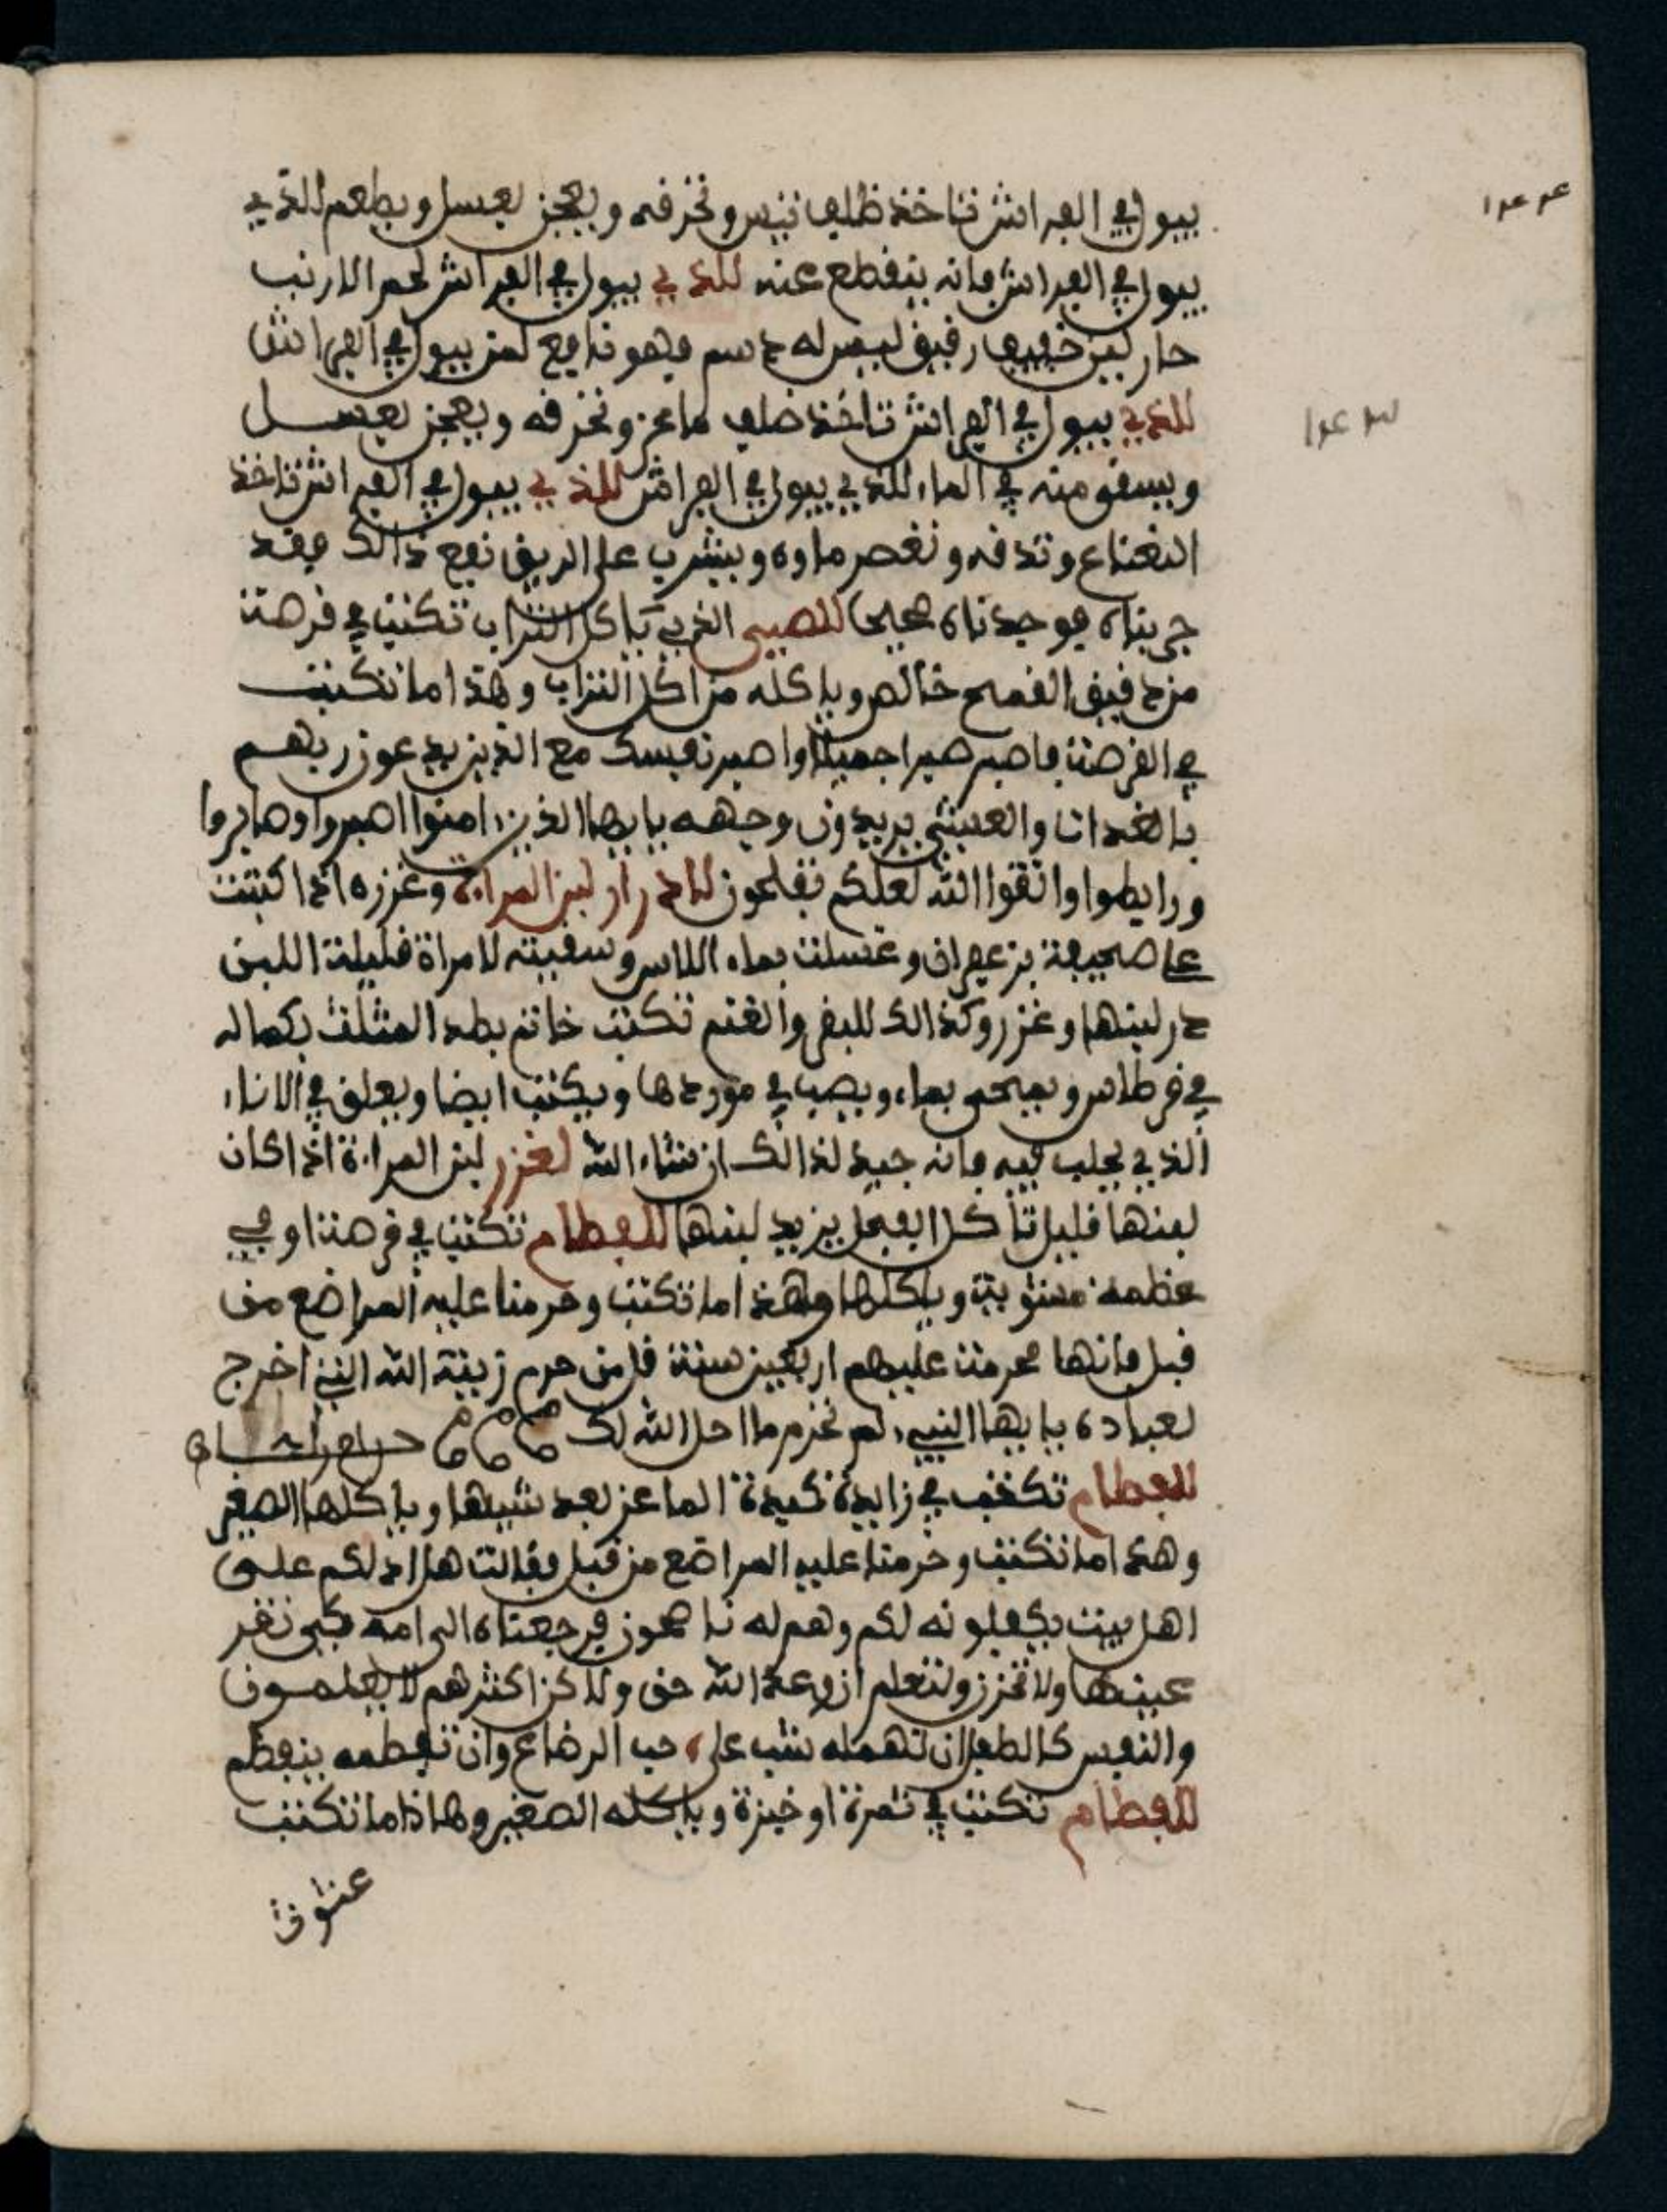 يبول في الفراش تاخذ ظلف تيس وتحرفه ويعجن بعسل ويطعم للذي
يبول في الفراش فانه ينقطع عنه للذي يبول في الفراش لحم الارنب
حار لين خفيف رقيق ليس له دسم فهو نافع لمن يبول في الفراش
للذي يبول في الفراش تاخذ ضلف ماعز وتحرفه ويعجن بعسل
ويسقى منه في الماء للذي يبول في الفراش للذي يبول في الفراش تاخذ
النعناع وتدقه وتعصر ماوه ويشرب على الريق نفع ذالك فقد
جربناه فوجدناه صحيحا للصبي الذي ياكل التراب تكتب في قرصة
من دقيق القمح خالص وياكله من اكل التراب وهذا ما تكتب
في القرصة فاصبر صبرا جميلا واصبر نفسك مع الذين يدعون ربهم
بالغدات والعشي يريدون وجهه يايها الذين امنوا اصبروا وصابروا
ورابطوا واتقوا الله لعلكم تفلحون لادرار لبن المراة وغزره اذا كتبت
على صحيفة بزعفران وغسلت بماء الاس وسقيته لامراة قليلة اللبن
در لبنها وغزر وكذالك للبقر والغنم تكتب خاتم بطد المثلث بكماله
في قرطاس ويمحى بماء ويصب في موردها ويكتب ايضا ويعلق في الاناء
الذي يحلب فيه فانه جيد لذالك ان شاء الله لغزر لبن المراة اذا كان
لبنها قليل تاكل الفجل يزيد لبنها للفطام تكتب في قرصة او في
عظمة مشوية وياكلها وهذا ما تكتب وحرمنا عليه المراضع من
قبل فانها محرمة عليهم اربعين سنة قل من حرم زينة الله التي اخرج
لعباده يايها النبيء لم تحرم ما احل الله لك
للفطام تكتب في زايدة كبدة الماعز بعد شيها وياكلها الصغير
وهذا ما تكتب وحرمنا عليه المراضع من قبل فقالت هل ادلكم على
اهل بيت يكفلونه لكم وهم له ناصحون فرجعناه الى امه كي تقر
عينها ولا تحزن ولتعلم ان وعد الله حق ولاكن اكثرهم لا يعلمون
والنفس كالطفل ان تهمله شب على حب الرضاع وان تفطمه ينفطم
للفطام تكتب في تمرة او خبزة وياكله الصغير وهاذا ما تكتب